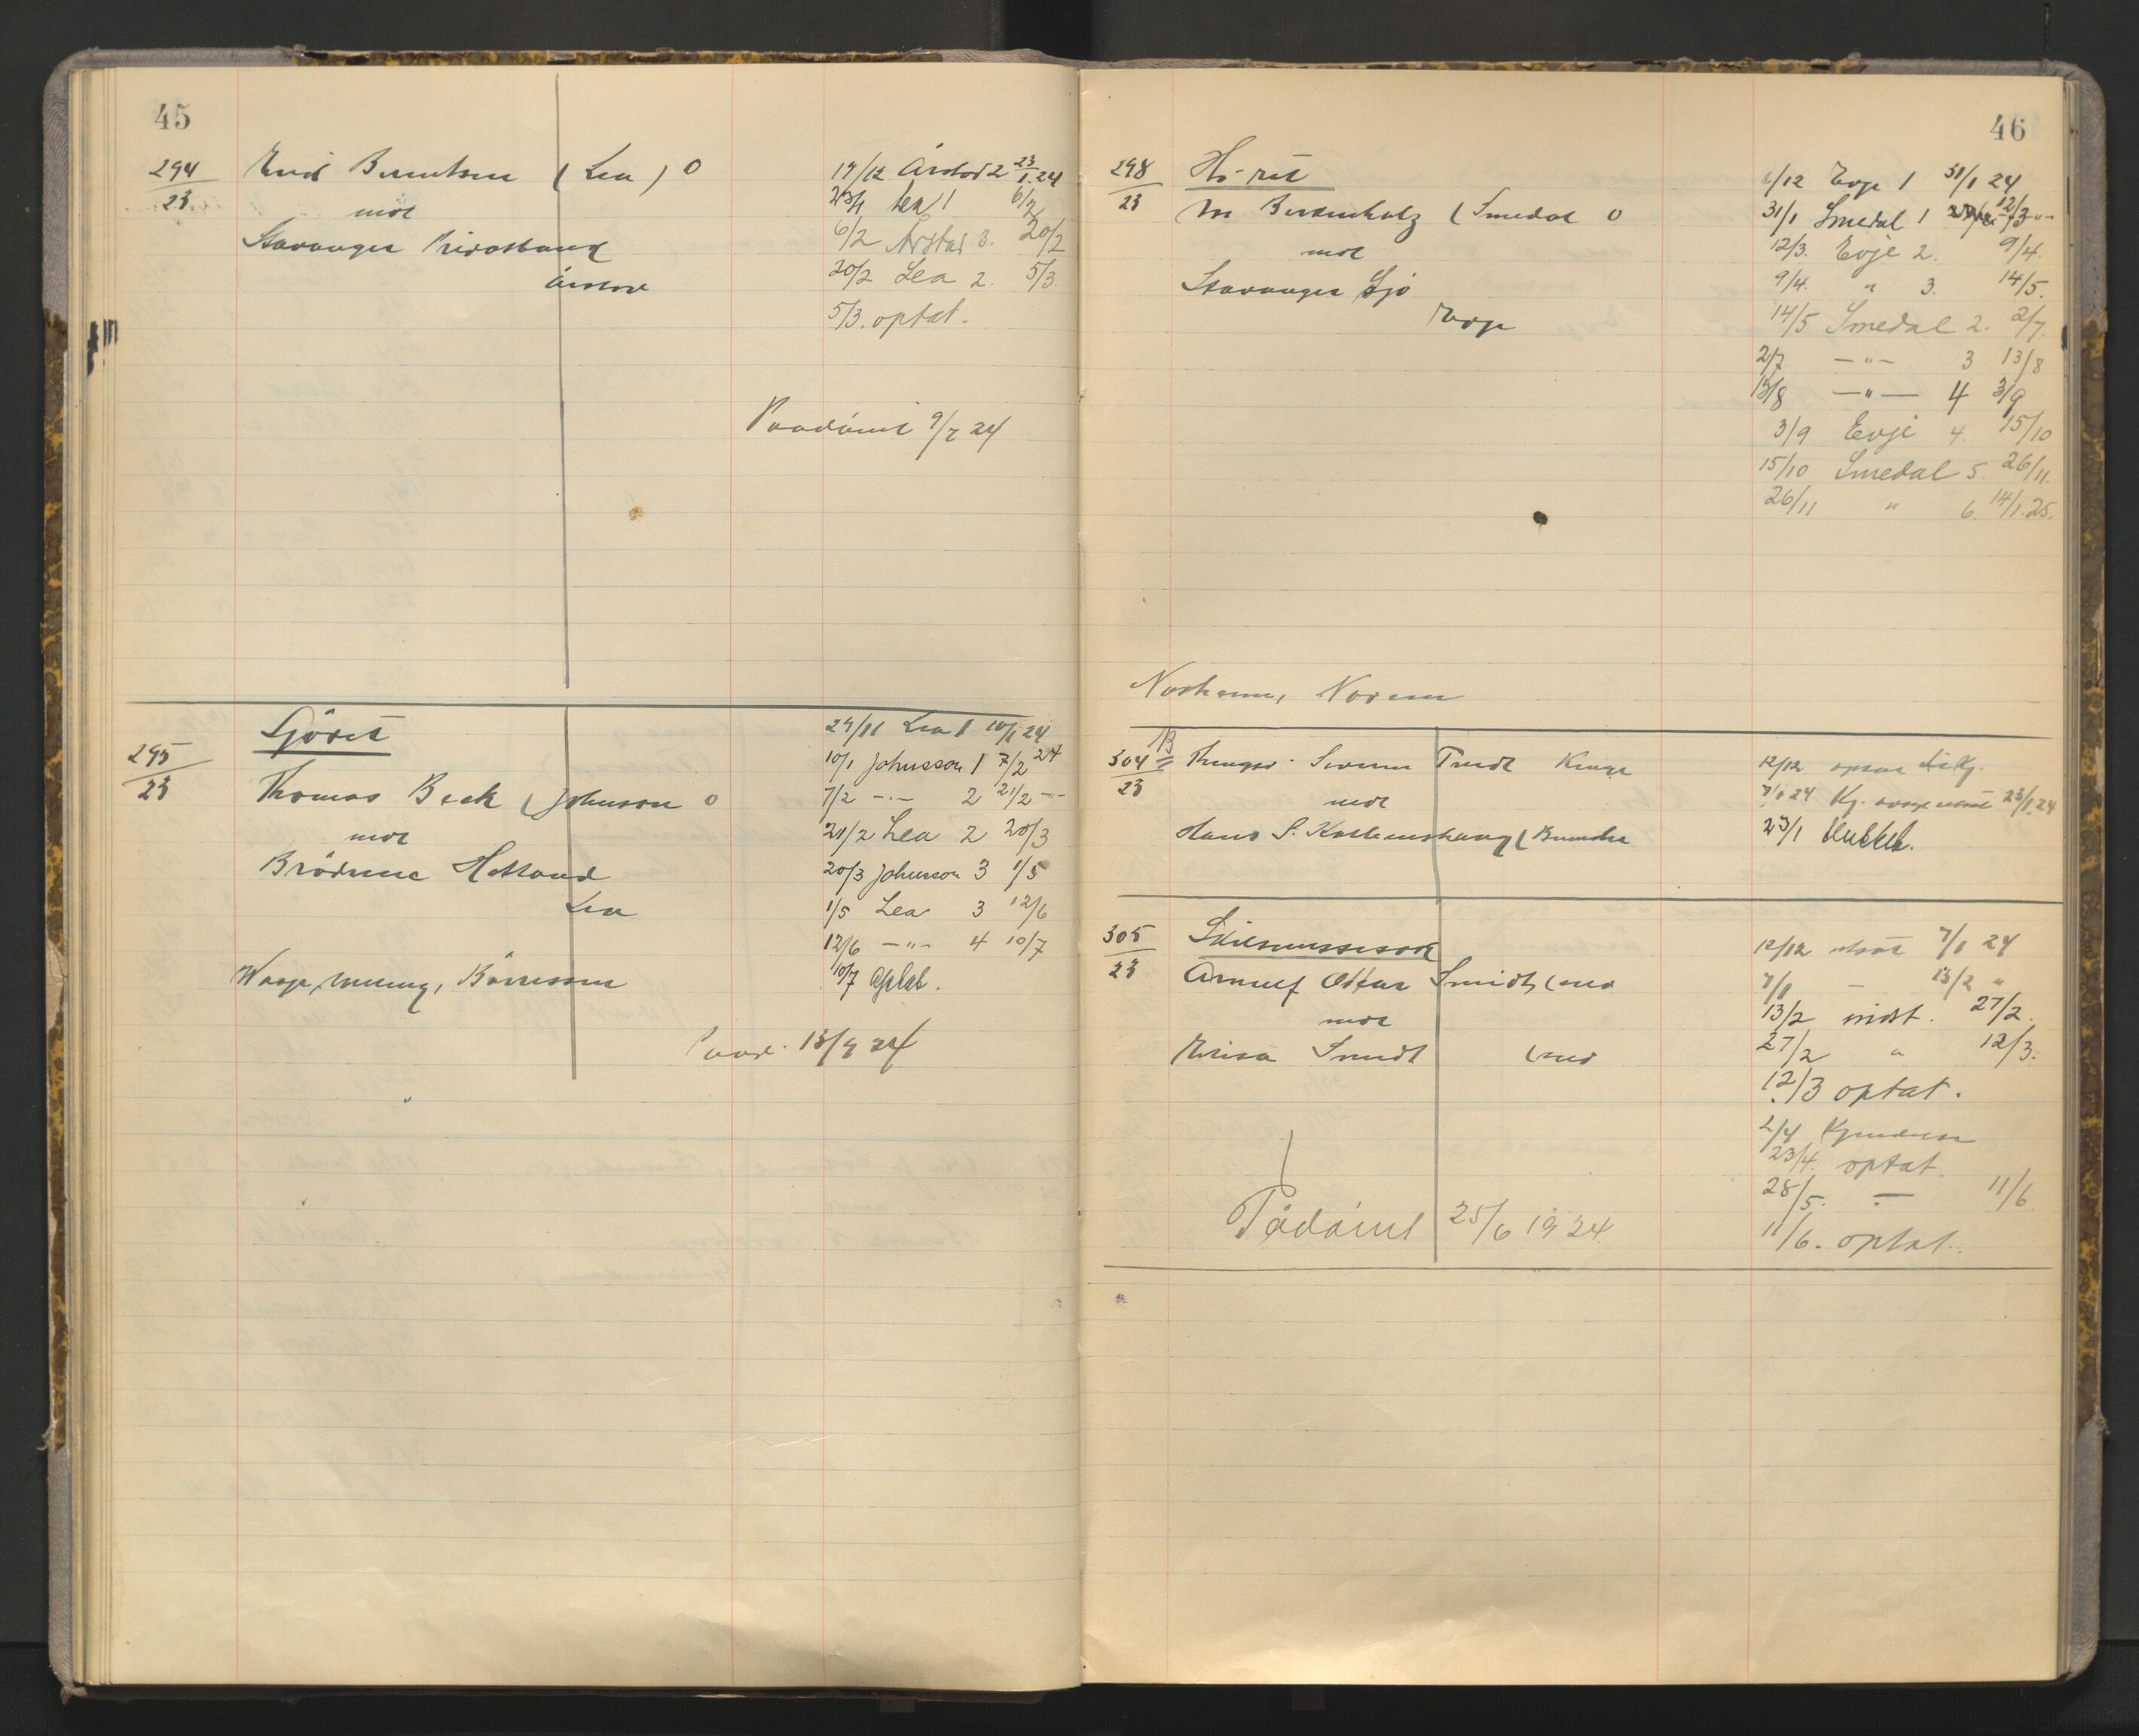 45
294
23
Berentsen (Lea) 0
mot
Stavanger Privatbank
Årstad
17/12 Årstad 2 23/1.24
23/1 Lea 1 6/2
6/2 Årstad 3. 20/2
20/2 Lea 2. 5/3.
5/3. optat.
Paadömt 9/7 24
295
23
Sjöret
Thomas Beck (Johnson 0
mot
Brödrene Hetland
Lea
Waage, Börressen
27/11 Lea 1 10/1 24
10/1 Johnsson 1 7/2 24
7/2 -"- 2 21/2 -"-
21/2 Lea 2 20/3
20/3 Johnsson 3 1/5
1/5 Lea 3 12/6
12/6 -"- 4 10/7
10/7 optat.
Paad. 13/9 24
46
298
23
Berkenholz (Smedal 0
mot
Stavanger Sjö
Evje
6/12 Evje 1 31/1 24
31/1 Smedal 1 12/3 -"-
12/3. Evje 2. 9/4.
9/4. " 3. 14/5.
14/5 Smedal 2. 2/7.
2/7 -"- 3 13/8
13/8 -"- 4 3/9
3/9 Evje 4. 15/10
15/10 Smedal 5. 26/11.
26/11 " 6. 14/1.25.
Norem
304 B
23
mot
Hans S.
12/12
7/1 24 Kj. 23/1 24
23/1
305
23
Skilsmissesak
Arnulf Ottar Smidt
mot
Smidt
12/12 utsat 7/1 24
7/1 - 13/2 "
13/2 utsat. 27/2.
27/2 " 12/3.
12/3 optat.
2/4 Kjendelse
23/4. optat.
28/5. - 11/6.
11/6. optat.
Pådömt 25/6 1924